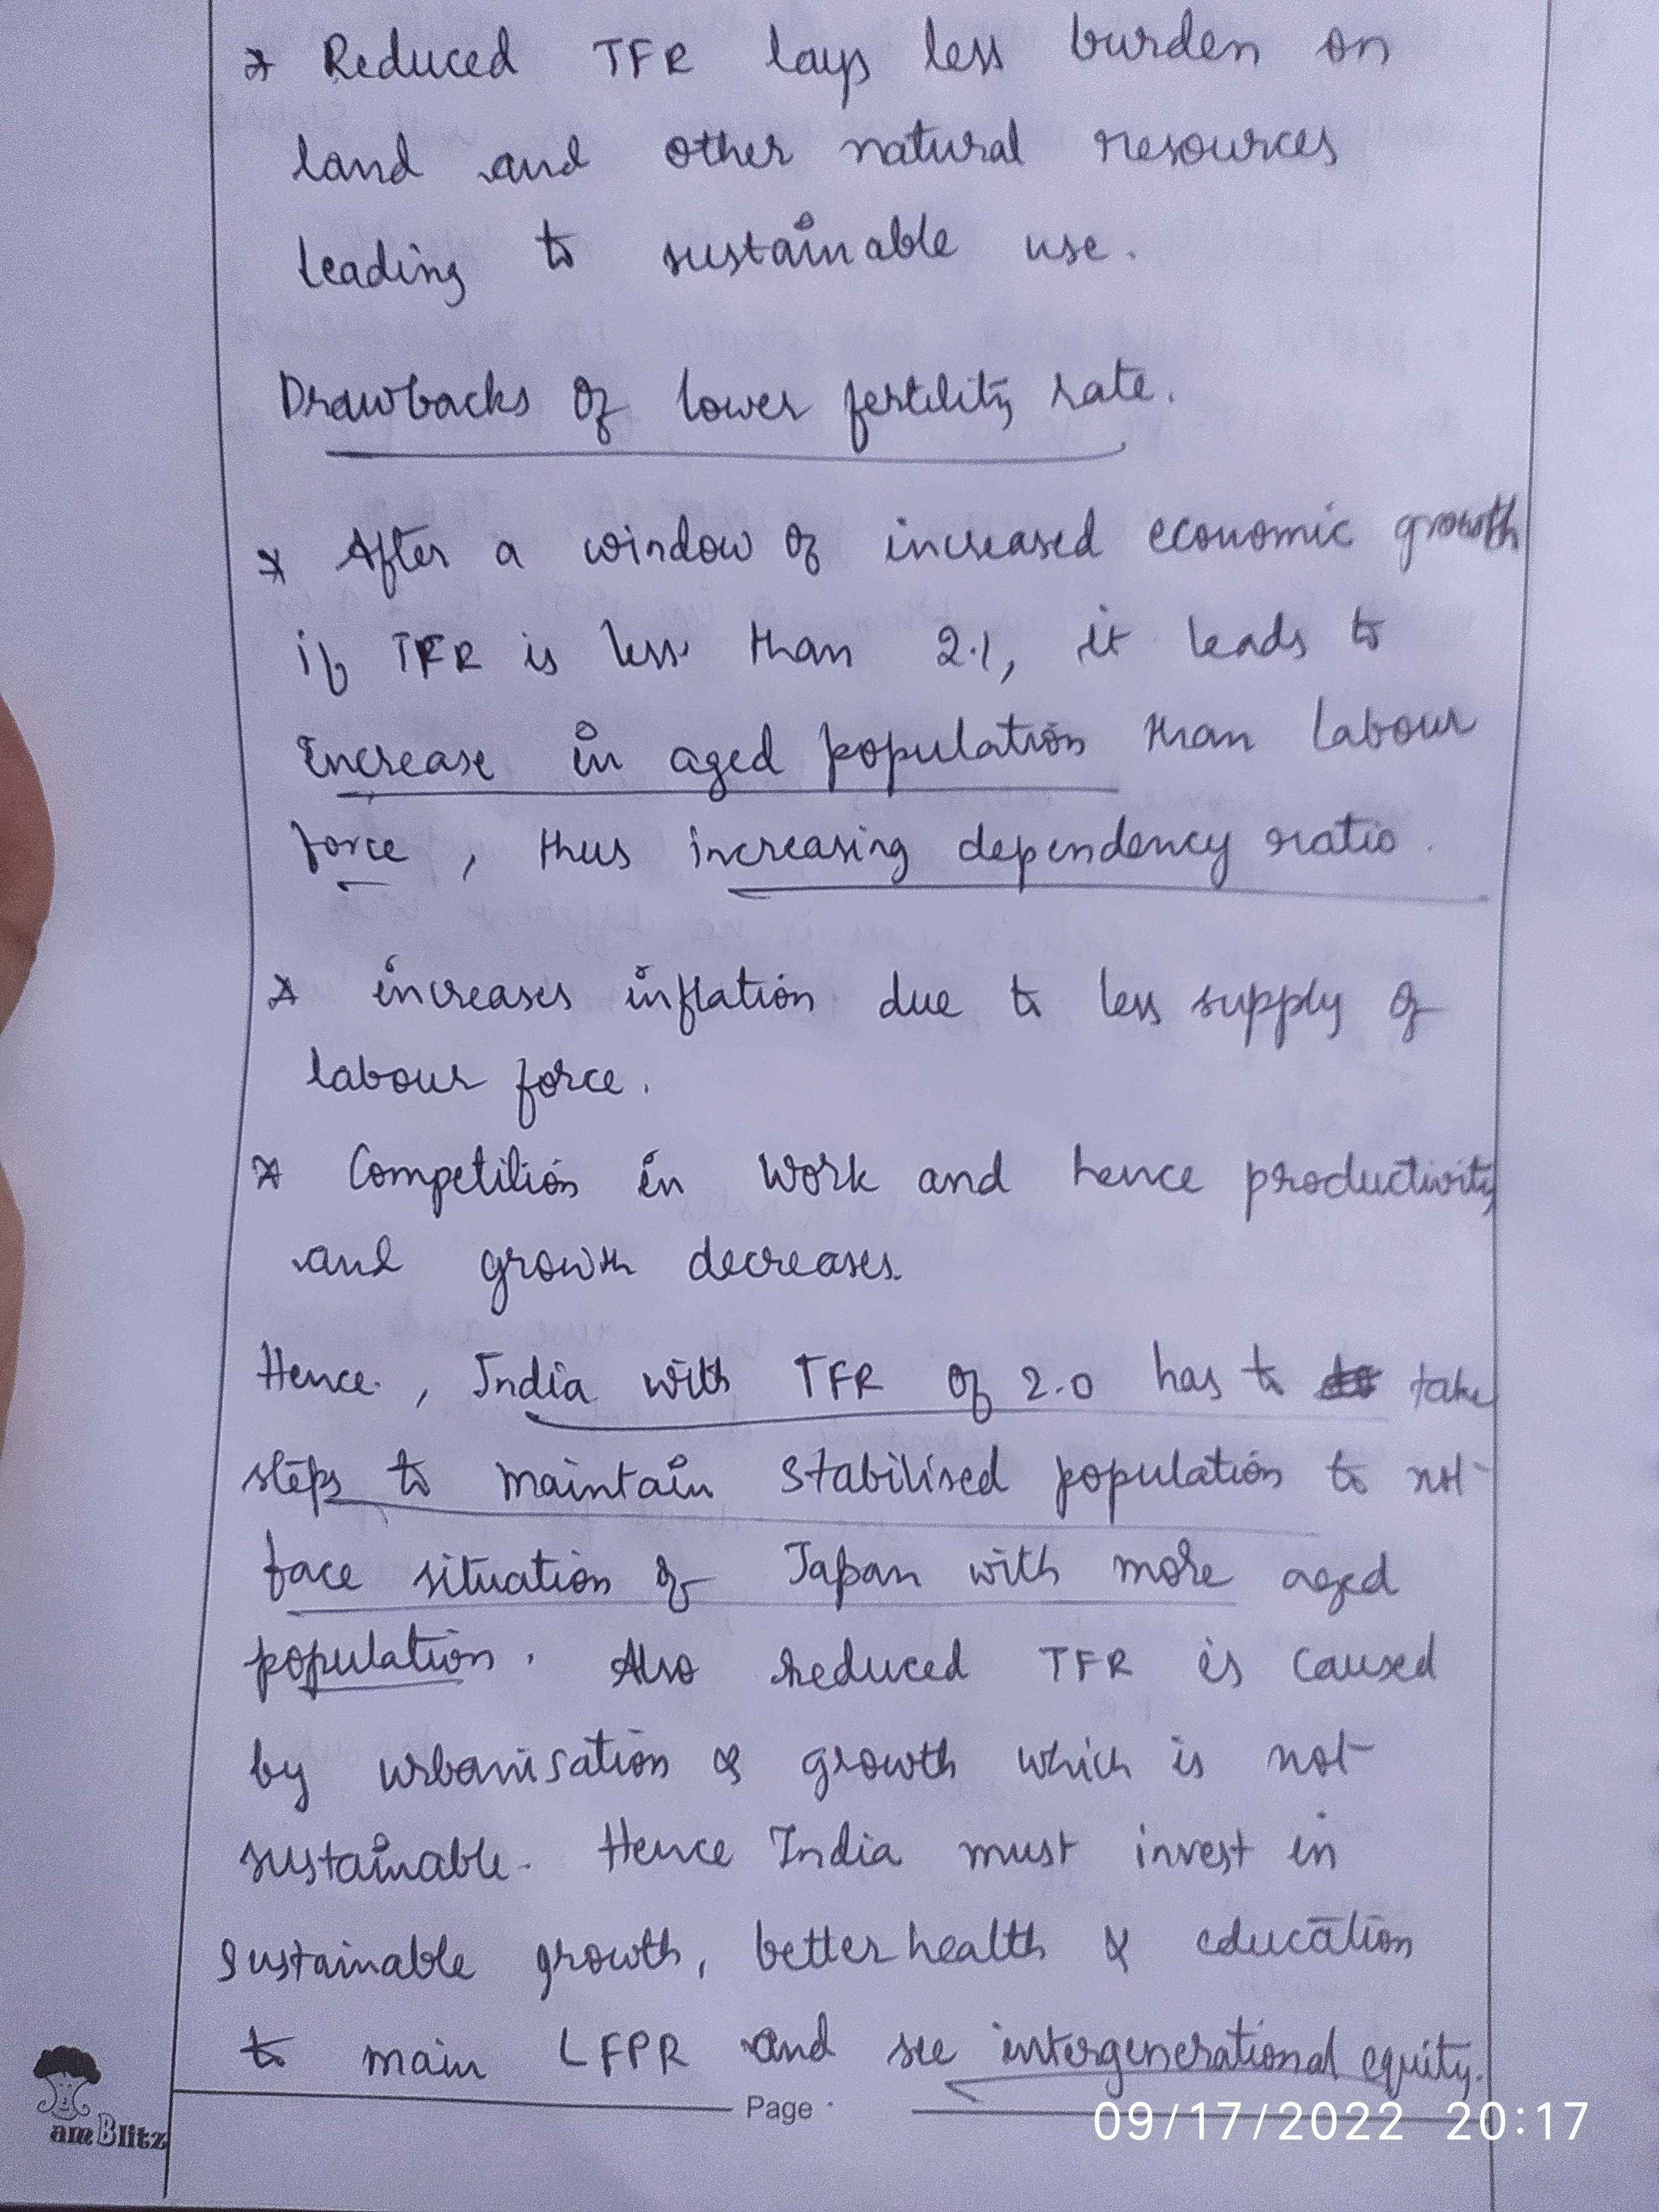 * Reduced TFR lays less burden on
land and other natural resources
leading to sustainable use.
Drawbacks of lower fertility rate.
* After a window of increased economic growth
if TFR is less than 2.1, it leads to
increase in aged population than labour
force, thus increasing dependency ratio.
* increases inflation due to less supply of
labour force.
* Competition in work and hence productivity
and growth decreases.
Hence, India with TFR of 2.0 has to take
steps to maintain stabilised population to not
face situation of Japan with more aged
population. Also reduced TFR is caused
by urbanisation & growth which is not
sustainable. Hence India must invest in
sustainable growth, better health & education
to main LFPR and see intergenerational equity.
Page
amBlitz
09/17/2022 20:17